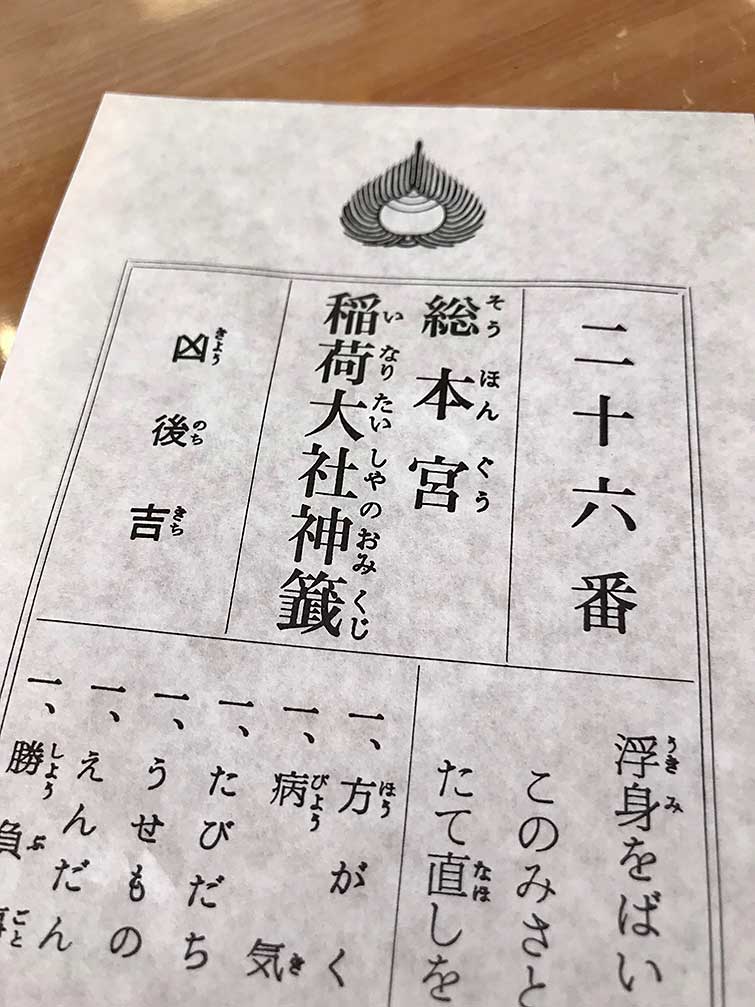 二十六番
総本宮
稲荷大社神籤
凶後吉
浮身をばい
このみさと
たて直しを
一、方がく
一、病気
一、たびだち
一、うせもの
一、えんだん
一、勝負事